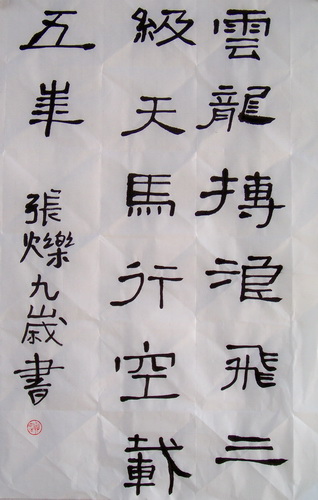 雲龍搏浪飛三
級天馬行空載
五峯
張爍九歲書